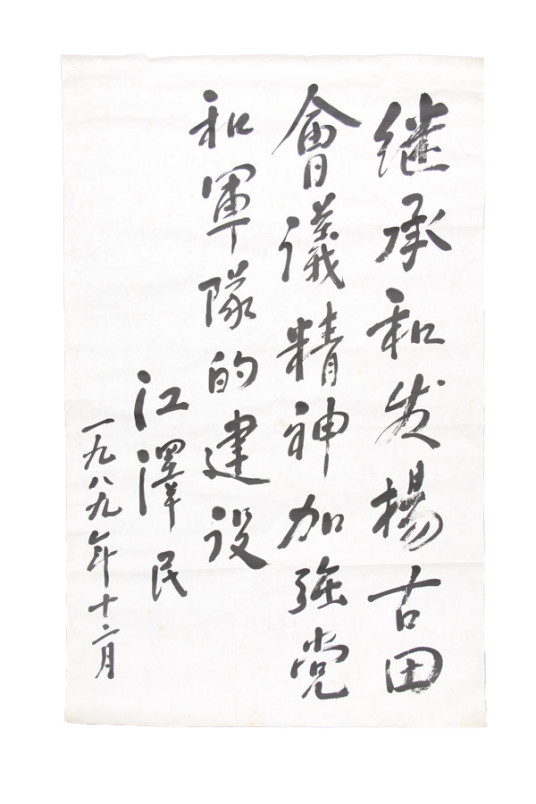 继承和发揚古田
會議精神加强党
和軍隊的建设
江澤民
一九八九年十二月